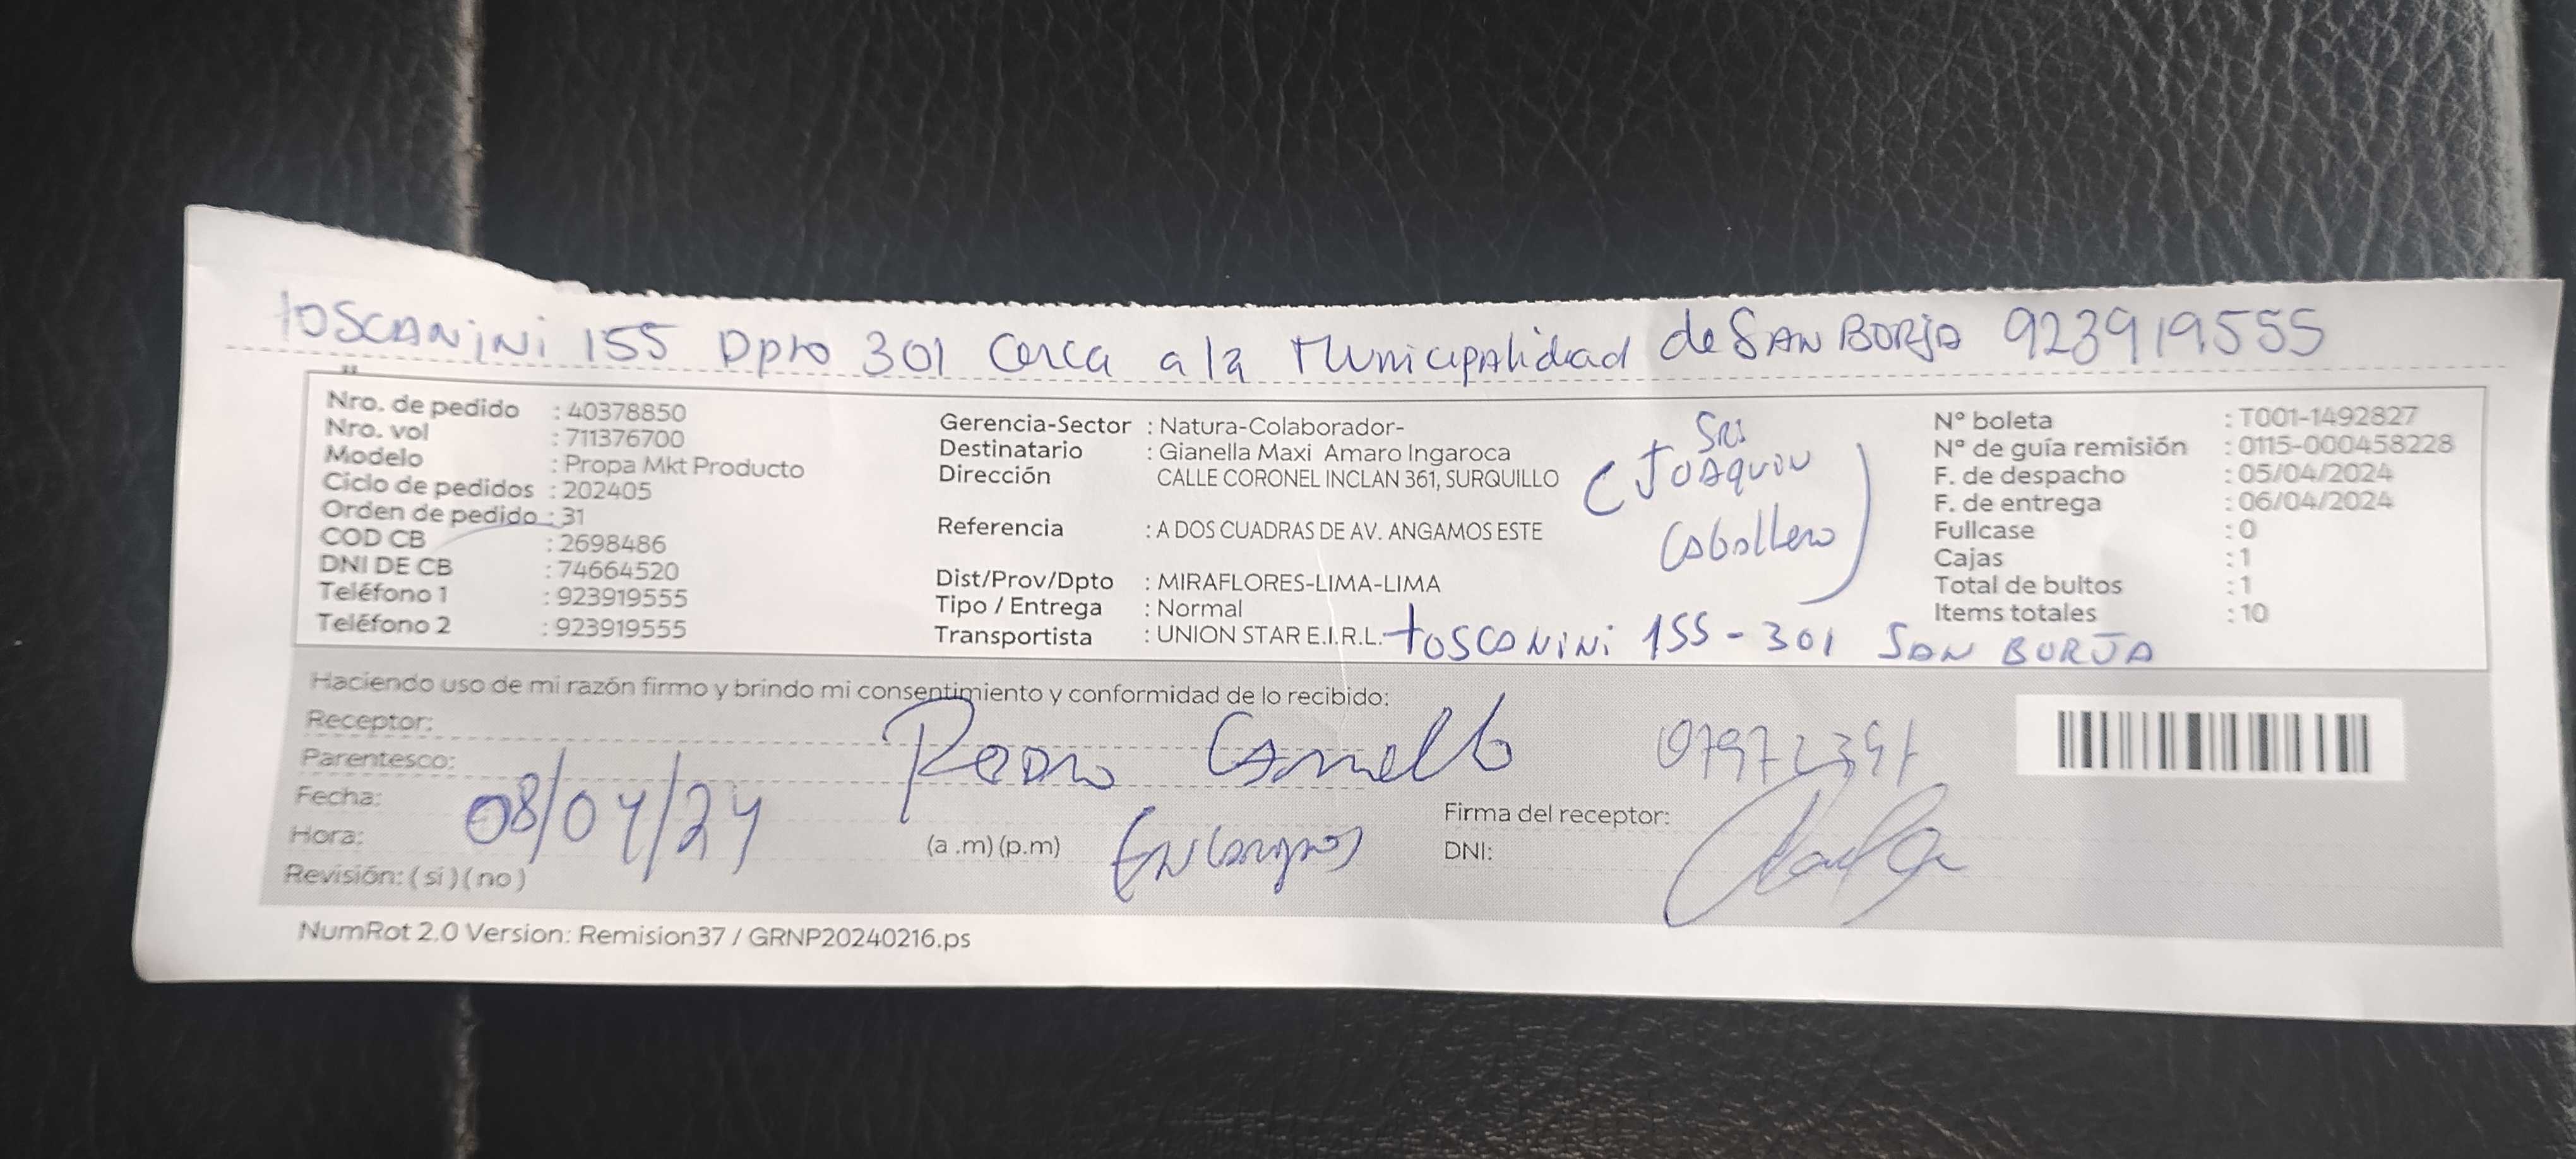 toscanini 155 Dpto 301 Cerca a la Municipalidad de SAN BORJA 923919555
Nro. de pedido : 40378850
Nro. vol : 711376700
Modelo : Propa Mkt Producto
Ciclo de pedidos : 202405
Orden de pedido : 31
COD CB : 2698486
DNI DE CB : 74664520
Teléfono 1 : 923919555
Teléfono 2 : 923919555
Gerencia-Sector : Natura-Colaborador-
Destinatario : Gianella Maxi Amaro Ingaroca
Dirección CALLE CORONEL INCLAN 361, SURQUILLO
Referencia : A DOS CUADRAS DE AV. ANGAMOS ESTE
Dist/Prov/Dpto : MIRAFLORES-LIMA-LIMA
Tipo / Entrega : Normal
Transportista : UNION STAR E.I.R.L.
(JOAQUIN
Caballero)
toscanini 155-301 SAN BORJA
N° boleta : T001-1492827
N° de guía remisión : 0115-000458228
F. de despacho : 05/04/2024
F. de entrega : 06/04/2024
Fullcase : 0
Cajas : 1
Total de bultos : 1
Items totales : 10
Haciendo uso de mi razón firmo y brindo mi consentimiento y conformidad de lo recibido:
Receptor:
Parentesco:
Fecha: 08/04/24
Hora: (a .m) (p.m)
Revisión: ( si ) ( no )
Firma del receptor:
DNI:
NumRot 2.0 Version: Remision37 / GRNP20240216.ps